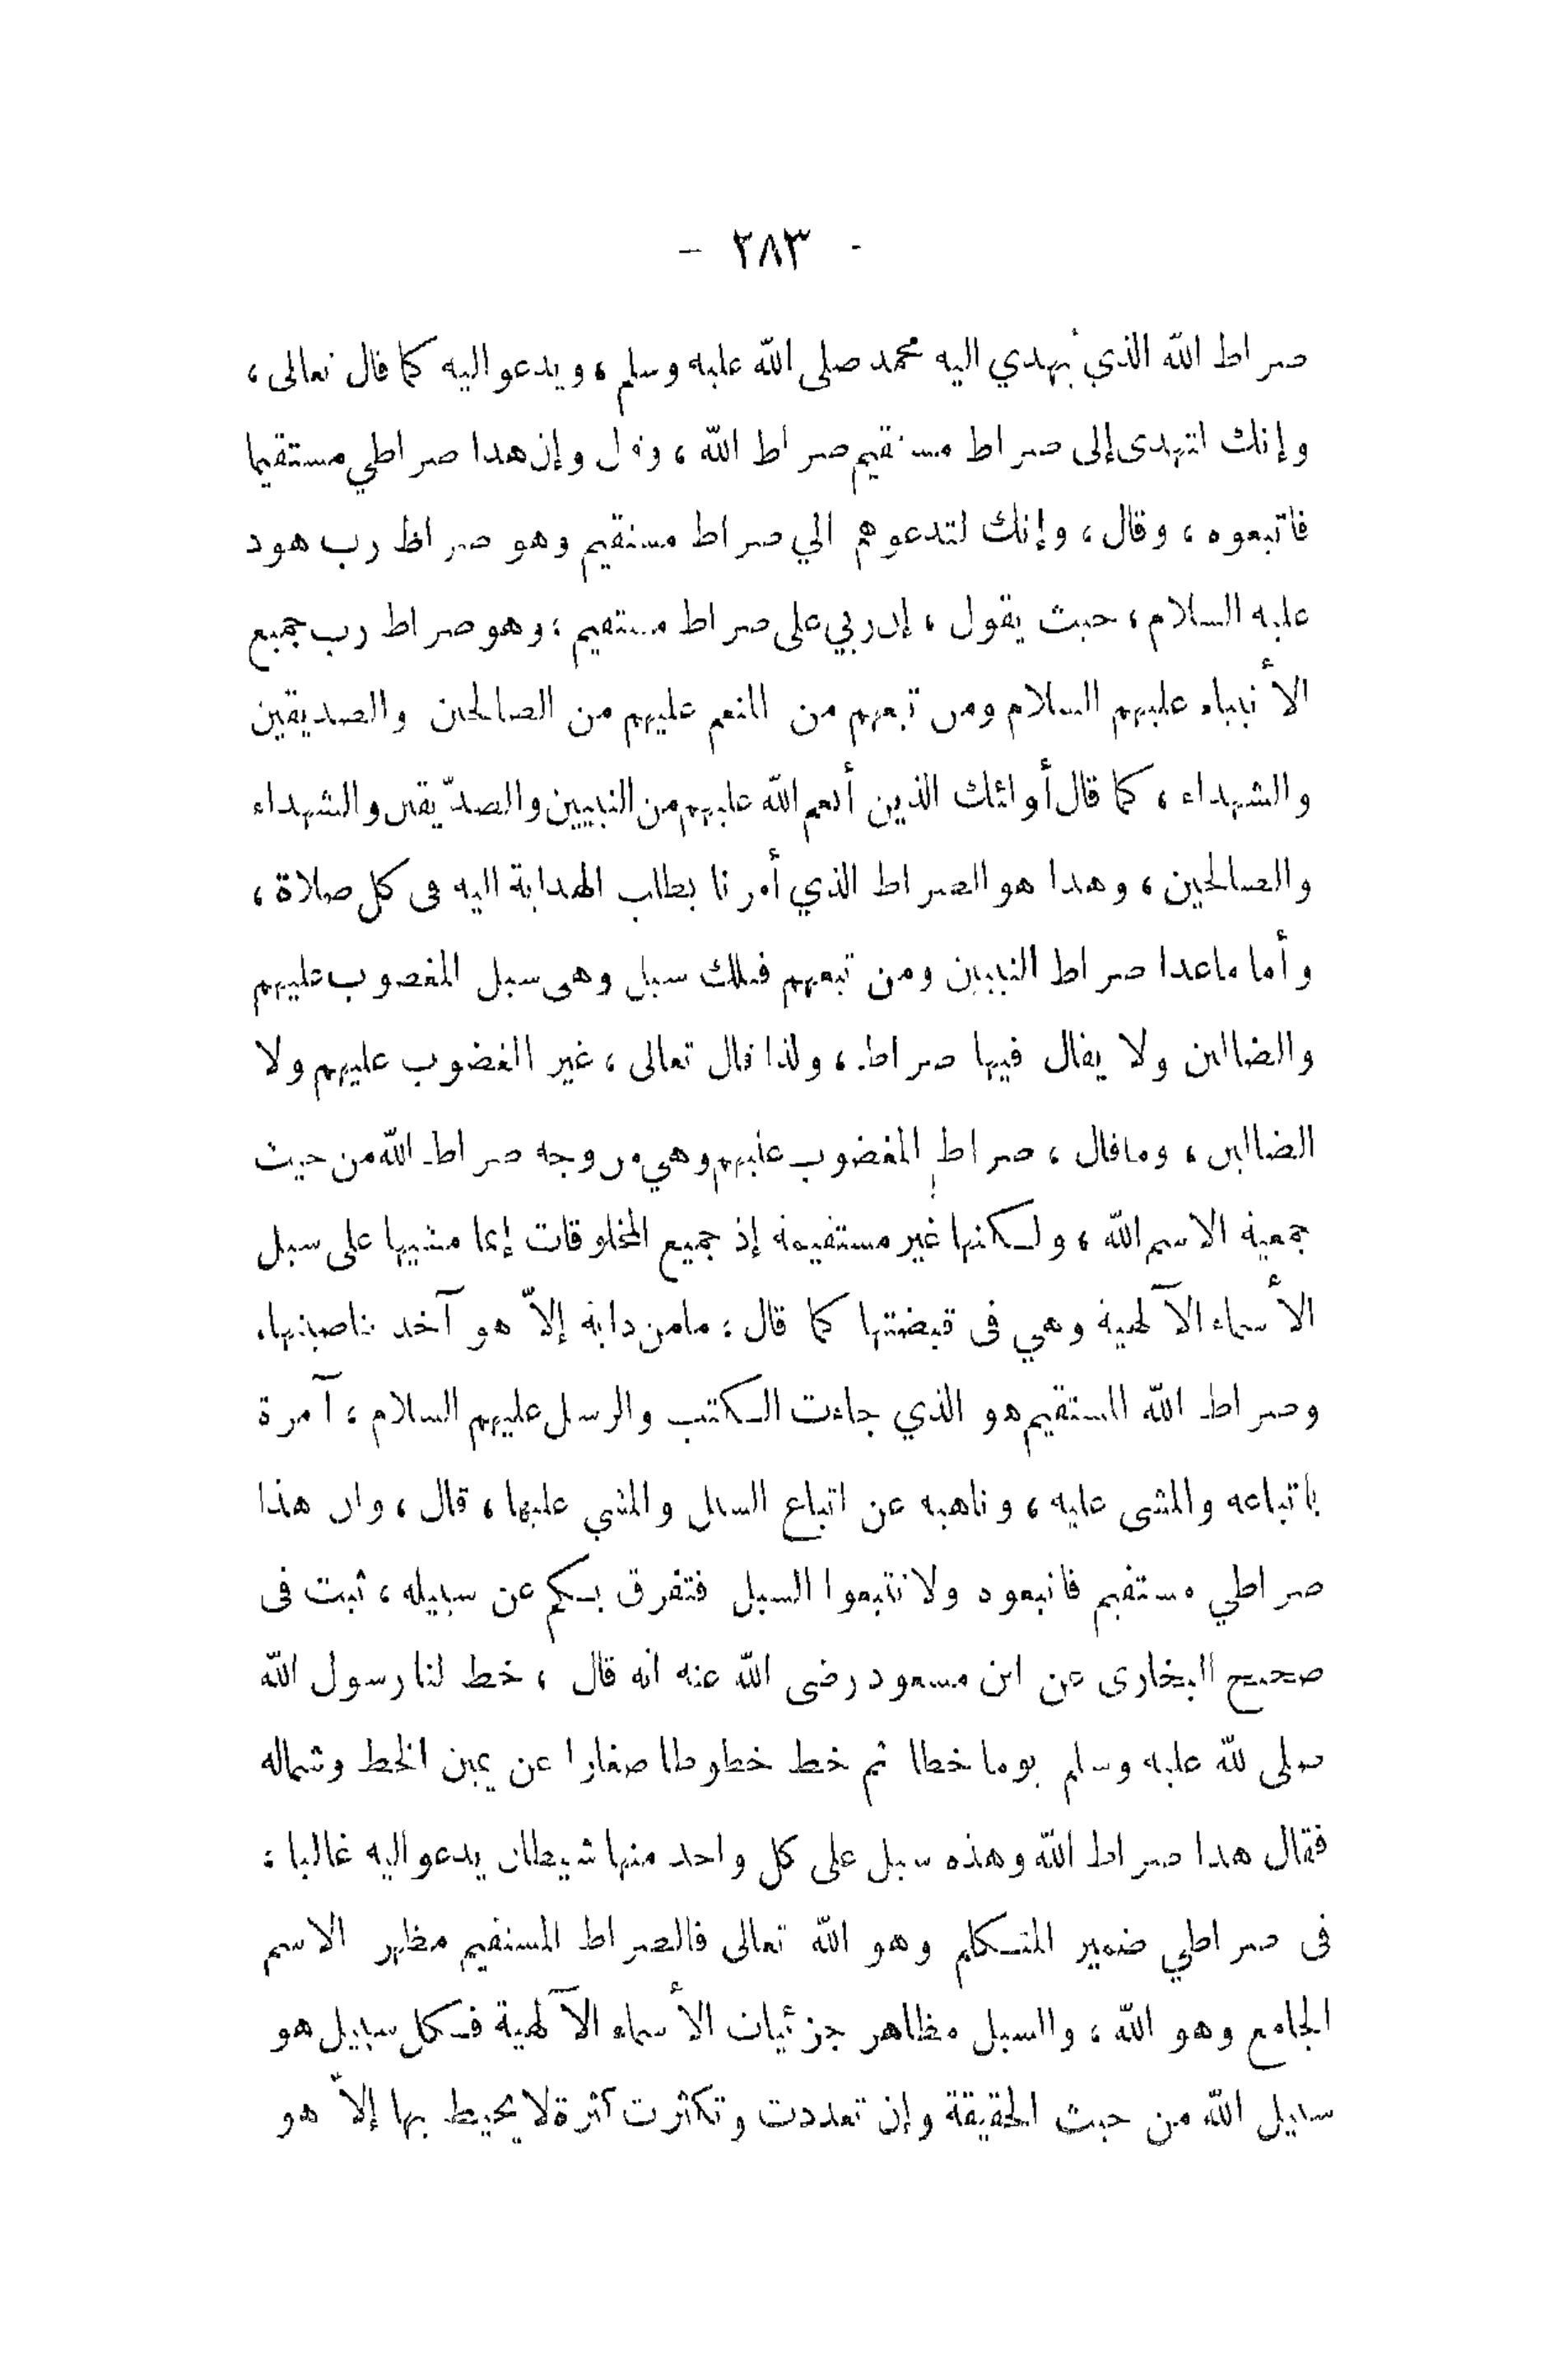 - ٢٨٣ -
صراط الله الذي يهدي اليه محمد صلى الله عليه وسلم، ويدعو اليه كما قال تعالى،
وإنك لتهدى إلى صراط مستقيم صراط الله، وقال وإن هذا صراطي مستقيما
فاتبعوه، وقال، وإنك لتدعوهم الي صراط مستقيم وهو صراط رب هود
عليه السلام، حيث يقول، إن ربي على صراط مستقيم، وهو صراط رب جميع
الأنبياء عليهم السلام ومن تبعهم من المنعم عليهم من الصالحين والصديقين
والشهداء، كما قال أولئك الذين أنعم الله عليهم من النبيين والصدّيقين والشهداء
والصالحين، وهذا هو الصراط الذي أمرنا بطلب الهداية اليه فى كل صلاة،
وأما ماعدا صراط النبيين ومن تبعهم فتلك سبل وهى سبل المغضوب عليهم
والضالين ولا يقال فيها صراط، ولذا قال تعالى، غير المغضوب عليهم ولا
الضالين، وماقال، صراط المغضوب عليهم وهي من وجه صراط الله من حيث
جمعية الاسم الله، ولكنها غير مستقيمة إذ جميع المخلوقات إنما مشيها على سبل
الأسماء الآلهية وهي فى قبضتها كما قال: مامن دابة إلاّ هو آخذ بناصيتها،
وصراط الله المستقيم هو الذي جاءت الكتب والرسل عليهم السلام، آمرة
باتباعه والمشى عليه، وناهيه عن اتباع السبل والمشي عليها، قال، وان هذا
صراطي مستقيم فاتبعوه ولا تتبعوا السبل فتفرق بكم عن سبيله، ثبت فى
صحيح البخارى عن ابن مسعود رضى الله عنه انه قال، خط لنا رسول الله
صلى لله عليه وسلم يوما خطا ثم خط خطوطا صغارا عن يمين الخط وشماله
فقال هذا صراط الله وهذه سبل على كل واحد منها شيطان يدعو اليه غالبا:
فى صراطي ضمير المتكلم وهو الله تعالى فالصراط المستقيم مظهر الاسم
الجامع وهو الله، والسبل مظاهر جزئيات الأسماء الآلهية فكل سبيل هو
سبيل الله من حيث الحقيقة وإن تعددت وتكثرت كثرة لا يحيط بها إلاّ هو